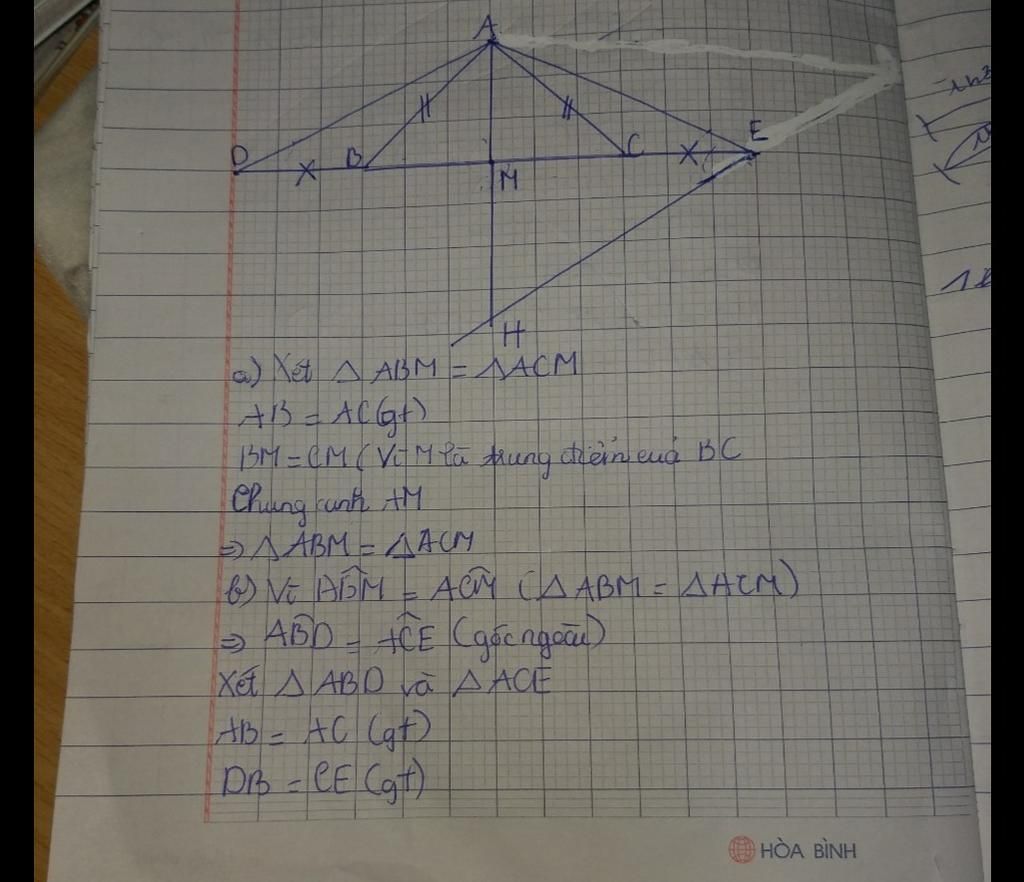 A
D
B
C
E
M
H
a) Xét △ ABM = △ACM
AB = AC (gt)
BM = CM (Vì M là trung điểm cuả BC
Chung cạnh AM
=> △ ABM = △ACM
b) Vì ABM = ACM (△ ABM = △ACM)
=> ABD = ACE (góc ngoài)
Xét △ ABD và △ ACE
AB = AC (gt)
DB = CE (gt)
HÒA BÌNH